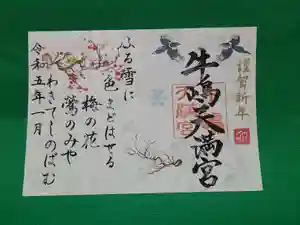 謹賀新年
牛嶋天満宮
ふる雪に
色まどはせる
梅の花
鶯のみや
わきてしのばむ
令和五年一月